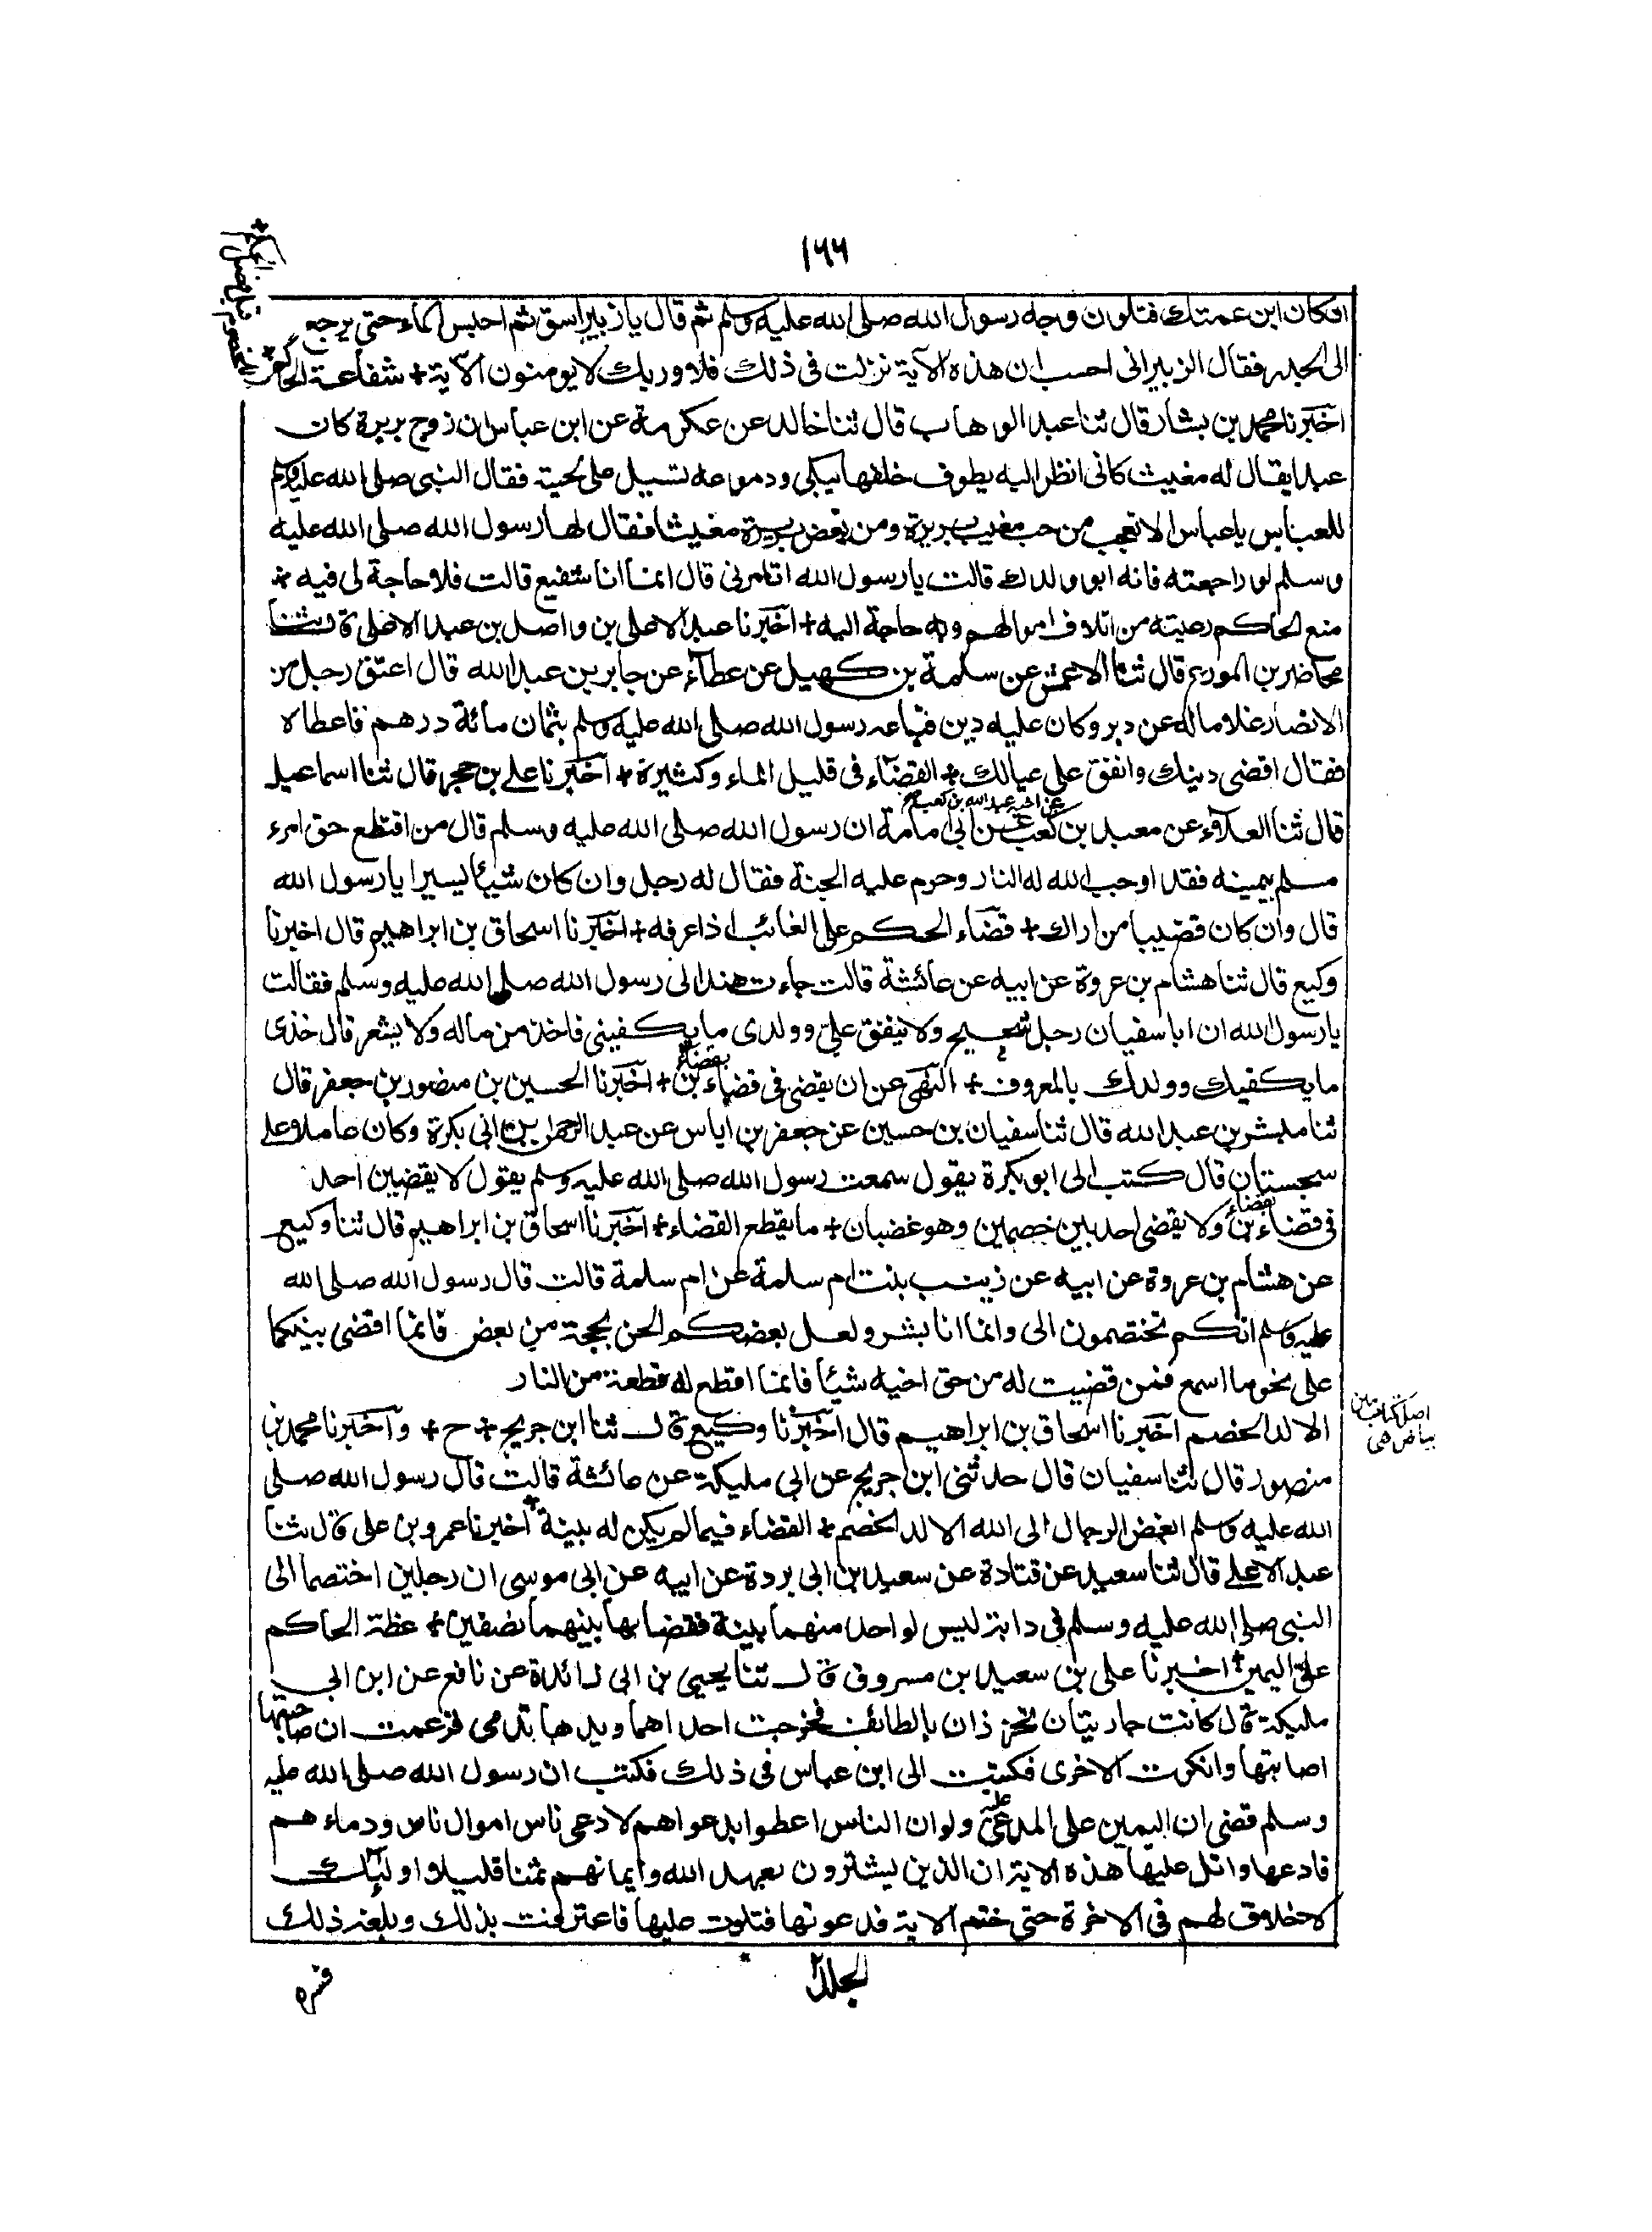 ١٦٦
ان كان ابن عمتك فتلون وجه رسول الله صلى الله عليه وسلم ثم قال يا زبير اسق ثم احبس الماء حتى يرجع
الى الجدر فقال الزبير انى احسب ان هذه الآية نزلت فى ذلك فلا وربك لا يومنون الآية + شفاعة الحاكم
للخصوم قبل فصل الحكم +
اخبرنا محمد بن بشار قال ثنا عبد الوهاب قال ثنا خالد عن عكرمة عن ابن عباس ان زوج بريرة كان
عبدا يقال له مغيث كانى انظر اليه يطوف خلفها يبكى ودموعه تسيل على لحيته فقال النبى صلى الله عليه وسلم
للعباس يا عباس الا تعجب من حب مغيث بريرة ومن بغض بريرة مغيثا فقال لها رسول الله صلى الله عليه
وسلم لو راجعته فانه ابو ولدك قالت يا رسول الله اتامرنى قال انما انا شفيع قالت فلا حاجة لى فيه +
منع الحاكم رعيته من اتلاف اموالهم وبه حاجة اليه + اخبرنا عبد الاعلى بن واصل بن عبد الاعلى قال ثنا
محاضر بن المورع قال ثنا الاعمش عن سلمة بن كهيل عن عطاء عن جابر بن عبد الله قال اعتق رجل من
الانصار غلاما له عن دبر وكان عليه دين فباعه رسول الله صلى الله عليه وسلم بثمان مائة درهم فاعطاه
فقال اقضى دينك وانفق على عيالك + القضاء فى قليل الماء وكثيرة + اخبرنا على بن حجر قال ثنا اسماعيل
قال ثنا العلاء عن معبد بن كعب عن اخيه عبد الله بن كعب عن ابى امامة ان رسول الله صلى الله عليه وسلم قال من اقتطع حق امرء
مسلم بيمينه فقد اوجب الله له النار وحرم عليه الجنة فقال له رجل وان كان شيئا يسيرا يا رسول الله
قال وان كان قضيبا من اراك + قضاء الحكم على الغائب اذا عرفه + اخبرنا اسحاق بن ابراهيم قال اخبرنا
وكيع قال ثنا هشام بن عروة عن ابيه عن عائشة قالت جاءت هند الى رسول الله صلى الله عليه وسلم فقالت
يا رسول الله ان ابا سفيان رجل شحيح ولا ينفق على وولدى ما يكفينى فاخذ من ماله ولا يشعر قال خذى
ما يكفيك وولدك بالمعروف + النهى عن ان يقضى فى قضاء بقضائين + اخبرنا الحسين بن منصور بن جعفر قال
ثنا مبشر بن عبد الله قال ثنا سفيان بن حسين عن جعفر بن اياس عن عبد الرحمن بن ابى بكرة وكان عاملا على
سجستان قال كتب الى ابو بكرة يقول سمعت رسول الله صلى الله عليه وسلم يقول لا يقضين احد
فى قضاء بقضائين ولا يقضى احد بين خصمين وهو غضبان + ما يقطع القضاء + اخبرنا اسحاق بن ابراهيم قال ثنا وكيع
عن هشام بن عروة عن ابيه عن زينب بنت ام سلمة عن ام سلمة قالت قال رسول الله صلى الله
عليه وسلم انكم تختصمون الى وانما انا بشر ولعل بعضكم الحن بحجته من بعض فانما اقضى بينكما
على نحو ما اسمع فمن قضيت له من حق اخيه شيئا فانما اقطع له قطعة من النار
اصل كتاب مين
بياض هى
الالد الخصم اخبرنا اسحاق بن ابراهيم قال اخبرنا وكيع قال ثنا ابن جريج + ح + واخبرنا محمد بن
منصور قال ثنا سفيان قال حدثنى ابن جريج عن ابى مليكة عن عائشة قالت قال رسول الله صلى
الله عليه وسلم ابغض الرجال الى الله الالد الخصم + القضاء فيما لم يكن له بينة + اخبرنا عمرو بن على قال ثنا
عبد الاعلى قال ثنا سعيد عن قتادة عن سعيد بن ابى بردة عن ابيه عن ابى موسى ان رجلين اختصما الى
النبى صلى الله عليه وسلم فى دابة ليس لواحد منهما بينة فقضا بها بينهما نصفين + عظة الحاكم
على اليمين + اخبرنا على بن سعيد بن مسروق قال ثنا يحيى بن ابى زائدة عن نافع عن ابن ابى
مليكة قال كانت جاريتان تخرزان بالطائف فخرجت احداهما ويدها تدمى فزعمت ان صاحبتها
اصابتها وانكرت الاخرى فكتبت الى ابن عباس فى ذلك فكتب ان رسول الله صلى الله عليه
وسلم قضى ان اليمين على المدعى عليه ولو ان الناس اعطوا بدعواهم لادعى ناس اموال ناس ودماءهم
فادعها واتل عليها هذه الاية ان الذين يشترون بعهد الله وايمانهم ثمنا قليلا اولئك
لا خلاق لهم فى الاخرة حتى ختم الاية فدعوتها فتلوت عليها فاعترفت بذلك وبلغه ذلك
المجلد ٢
فسره